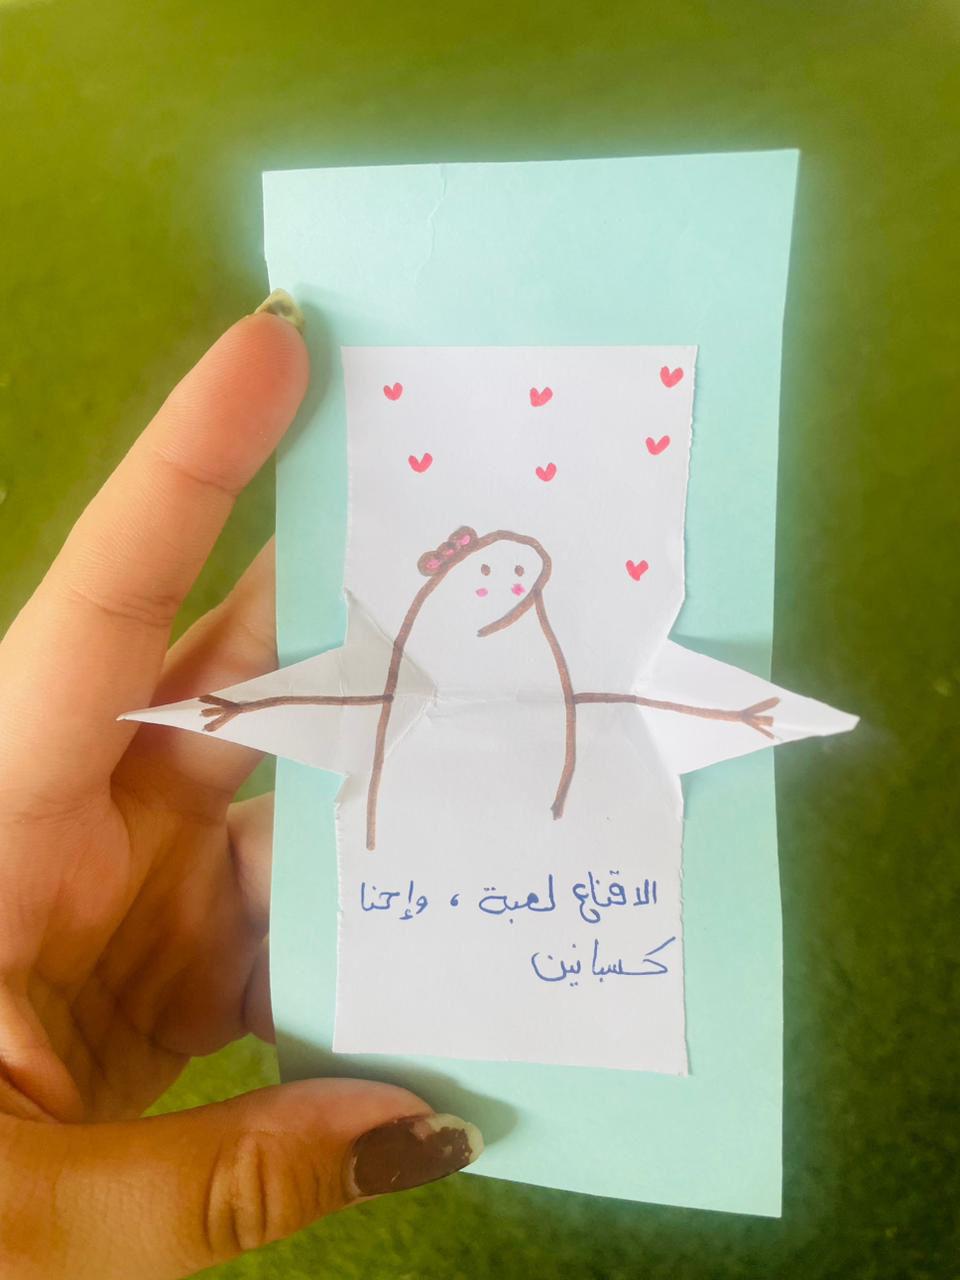 الاقناع لعبة ، وإحنا
كسبانين